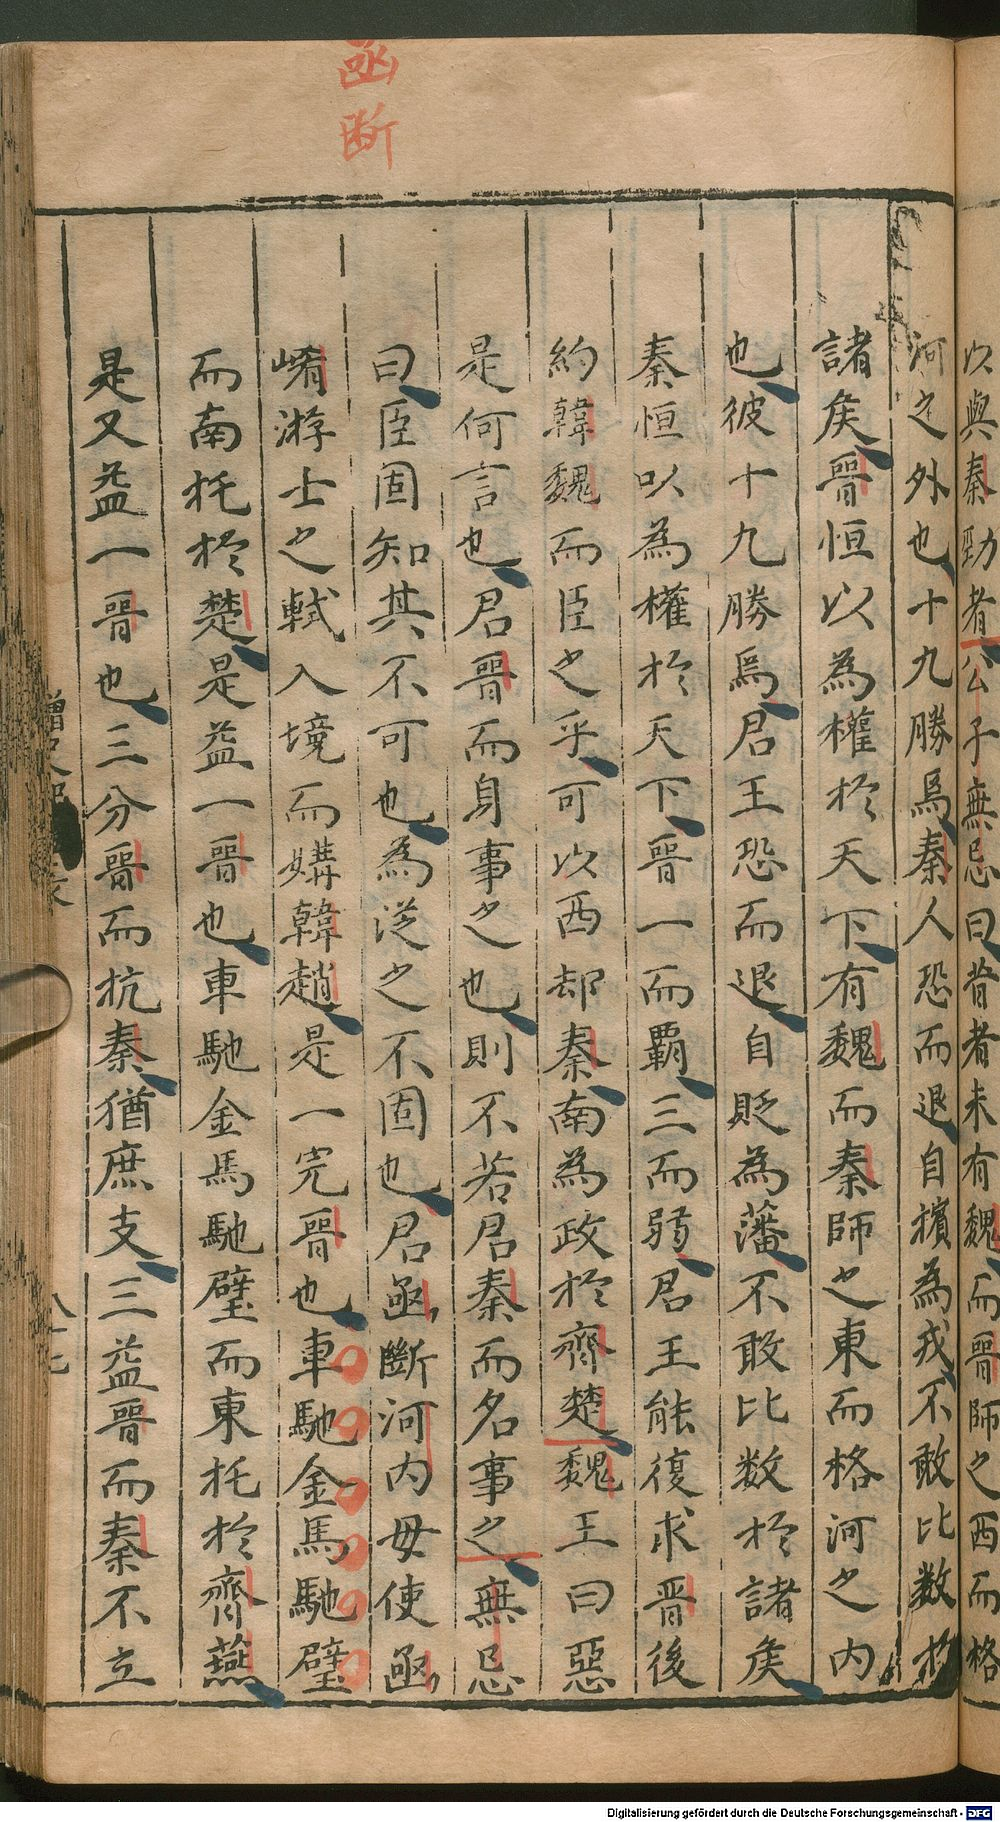 亟斷
以與秦勁者公子無忌曰昔者未有魏而晉師之西而格
河之外也十九勝焉秦人恐而退自擯為戎不敢比数於
諸矦晉恒以為權於天下有魏而秦師之東而格河之内
也彼十九勝焉君王恐而退自貶為藩不敢比数於諸矦
秦恒以為權於天下晉一而覇三而弱君王能復求晉後
約韓魏而臣之乎可以西却秦南為政於齊楚魏王曰惡
是何言也君晉而身事之也則不若君秦而名事之無忌
曰臣固知其不可也為從之不固也君亟斷河内毋使亟
崤游士之軾入境而媾韓趙是一完晉也車馳金馬馳璧
而南托於楚是益一晉也車馳金馬馳璧而東托於齊燕
是又益一晉也三分晉而抗秦猶庶支三益晉而秦不立
Digitalisierung gefördert durch die Deutsche Forschungsgemeinschaft - DFG